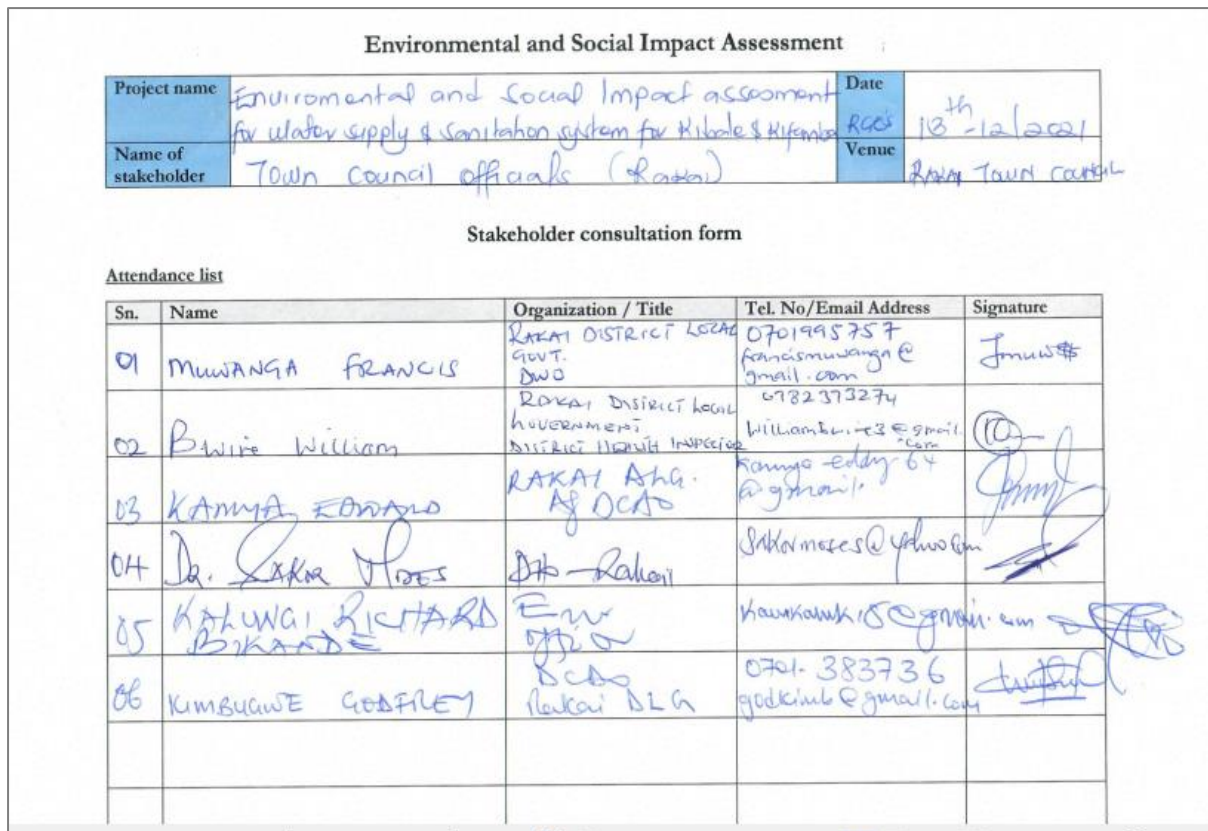 Environmental and Social Impact Assessment
Project name
Enviromental and Social Impact assesment
for water supply & sanitation system for Kibale & Kifamba RGC's
Date
18th-12/2021
Name of stakeholder
Town Council officials (Rakai)
Venue
RAKAI TOWN COUNCIL
Stakeholder consultation form
Attendance list
Sn. Name Organization / Title Tel. No/Email Address Signature
01 MUWANGA FRANCIS
RAKAI DISTRICT LOCAL
GOVT.
DWO
0701995757
francismuwanga@
gmail.com
02 Bwire William
RAKAI DISTRICT LOCAL
GOVERNMENT
DISTRICT HEALTH INSPECTOR
0782373274
.com
03 KAMYA EDWARD
RAKAI
Ag DCAO
eddy 64
@gmail.
04 DR. SAKOR MOSES
DHO - Rakai
sakormoses@yahoo.com
05 KALUNGI RICHARD
BIKANDE
Env
officer
@gmail.com
06 KIMBUGWE GODFREY
DCDO
Rakai DLG
0701-383736
godkimb@gmail.com